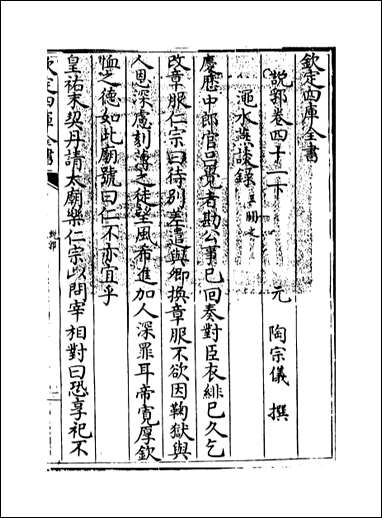 欽定四庫全書
說郛卷四十一下
元 陶宗儀 撰
澠水燕談錄 王闢之
慶歷中郎官呂覺者勘公事已回奏對臣衣緋已久乞
改章服仁宗曰待別差遣與卿換章服不欲因鞫獄與
人恩深慮刻薄之徒望風希進加人深罪耳帝寛厚欽
恤之德如此廟號曰仁不亦宜乎
皇祐末契丹請太廟樂仁宗以問宰相對曰恐享祀不
欽定四庫全書
說郛